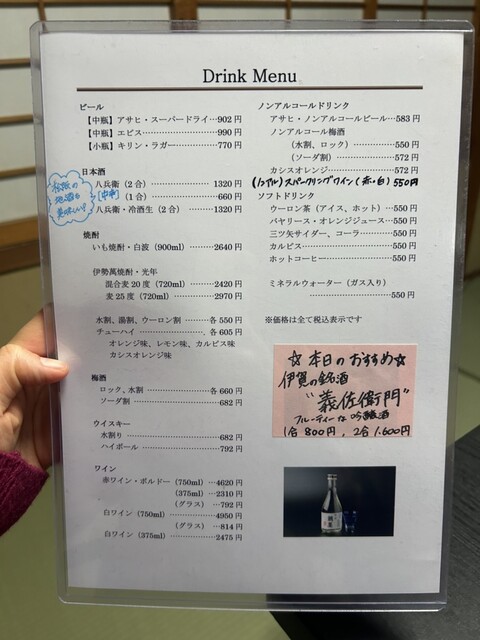 Drink Menu
ビール
【中瓶】アサヒ・スーパードライ…902 円
【中瓶】エビス………………………990 円
【小瓶】キリン・ラガー……………770 円
日本酒
八兵衛(2 合) ……………………1320 円
[中辛] (1 合) ……………………660 円
八兵衛・冷酒生(2 合) …………1320 円
松阪の
地酒も
美味しい!
焼酎
いも焼酎・白波(900ml) ………2640 円
伊勢萬焼酎・光年
混合麦 20 度(720ml) …………2420 円
麦 25 度(720ml) ………………2970 円
水割、湯割、ウーロン割 ………各 550 円
チューハイ …………………………各 605 円
オレンジ味、レモン味、カルピス味
カシスオレンジ味
梅酒
ロック、水割 ………………………各 660 円
ソーダ割 ……………………………682 円
ウイスキー
水割り …………………………………682 円
ハイボール ……………………………792 円
ワイン
赤ワイン・ボルドー(750ml)…4620 円
(375ml)…2310 円
(グラス) …792 円
白ワイン(750ml) ………………4950 円
(グラス) …814 円
白ワイン(375ml) ………………2475 円
ノンアルコールドリンク
アサヒ・ノンアルコールビール…583 円
ノンアルコール梅酒
(水割、ロック) ………………550 円
(ソーダ割) ……………………572 円
カシスオレンジ ……………………572 円
(ノンアル)スパークリングワイン(赤・白)550円
ソフトドリンク
ウーロン茶(アイス、ホット) …550 円
バヤリース・オレンジジュース…550 円
三ツ矢サイダー、コーラ …………550 円
カルピス ………………………………550 円
ホットコーヒー ………………………550 円
ミネラルウォーター(ガス入り)
……………………………550 円
※価格は全て税込表示です
☆本日のおすすめ☆
伊賀の銘酒
"義左衛門"
フルーティーな吟醸酒
1合 800円, 2合 1.600円